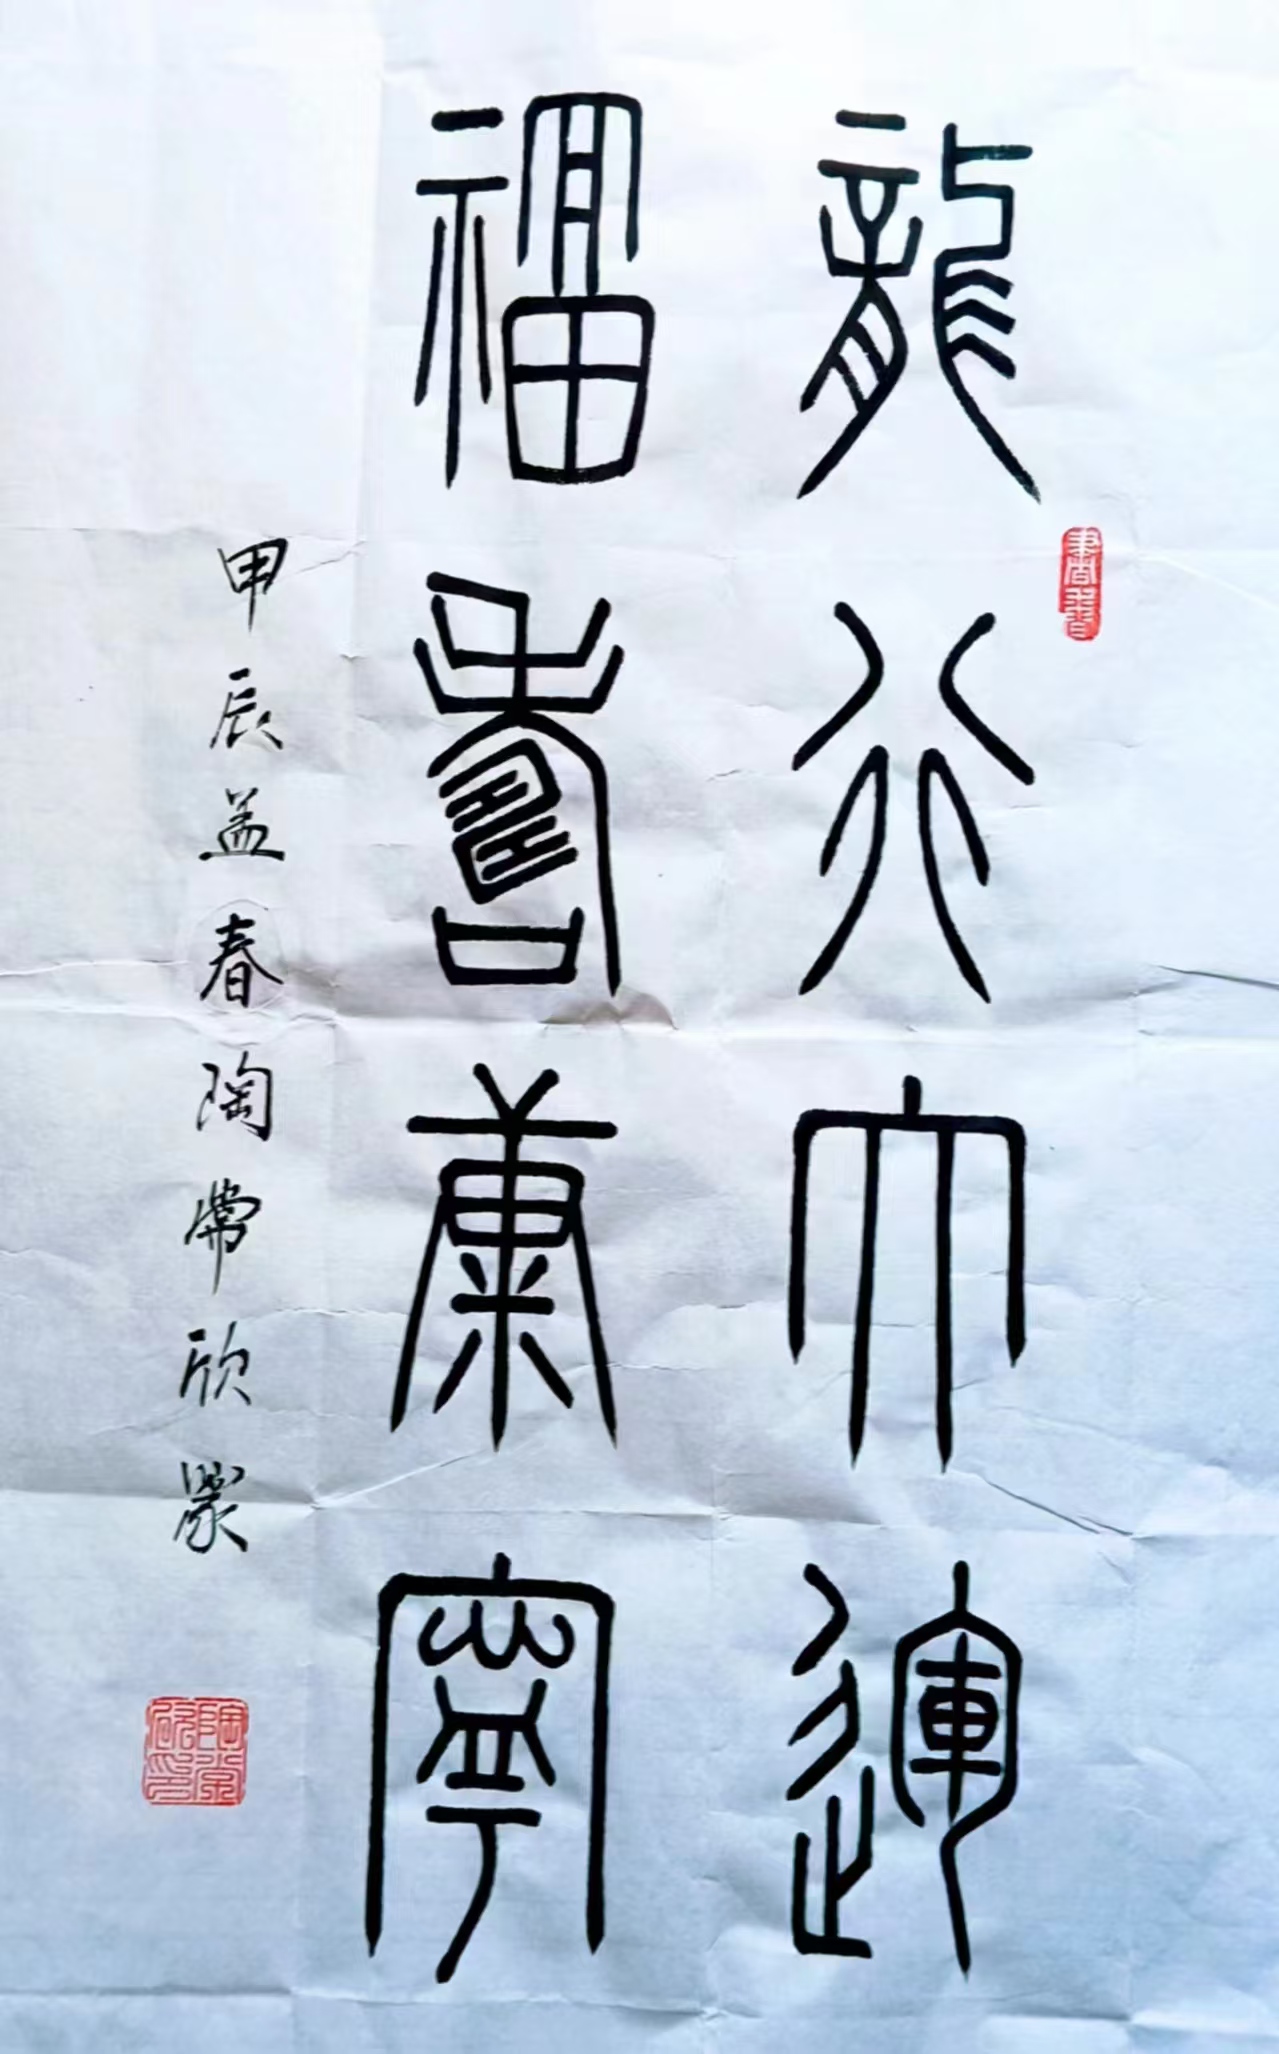 龍行大運
書香
福壽康寧
甲辰孟春陶常欣篆